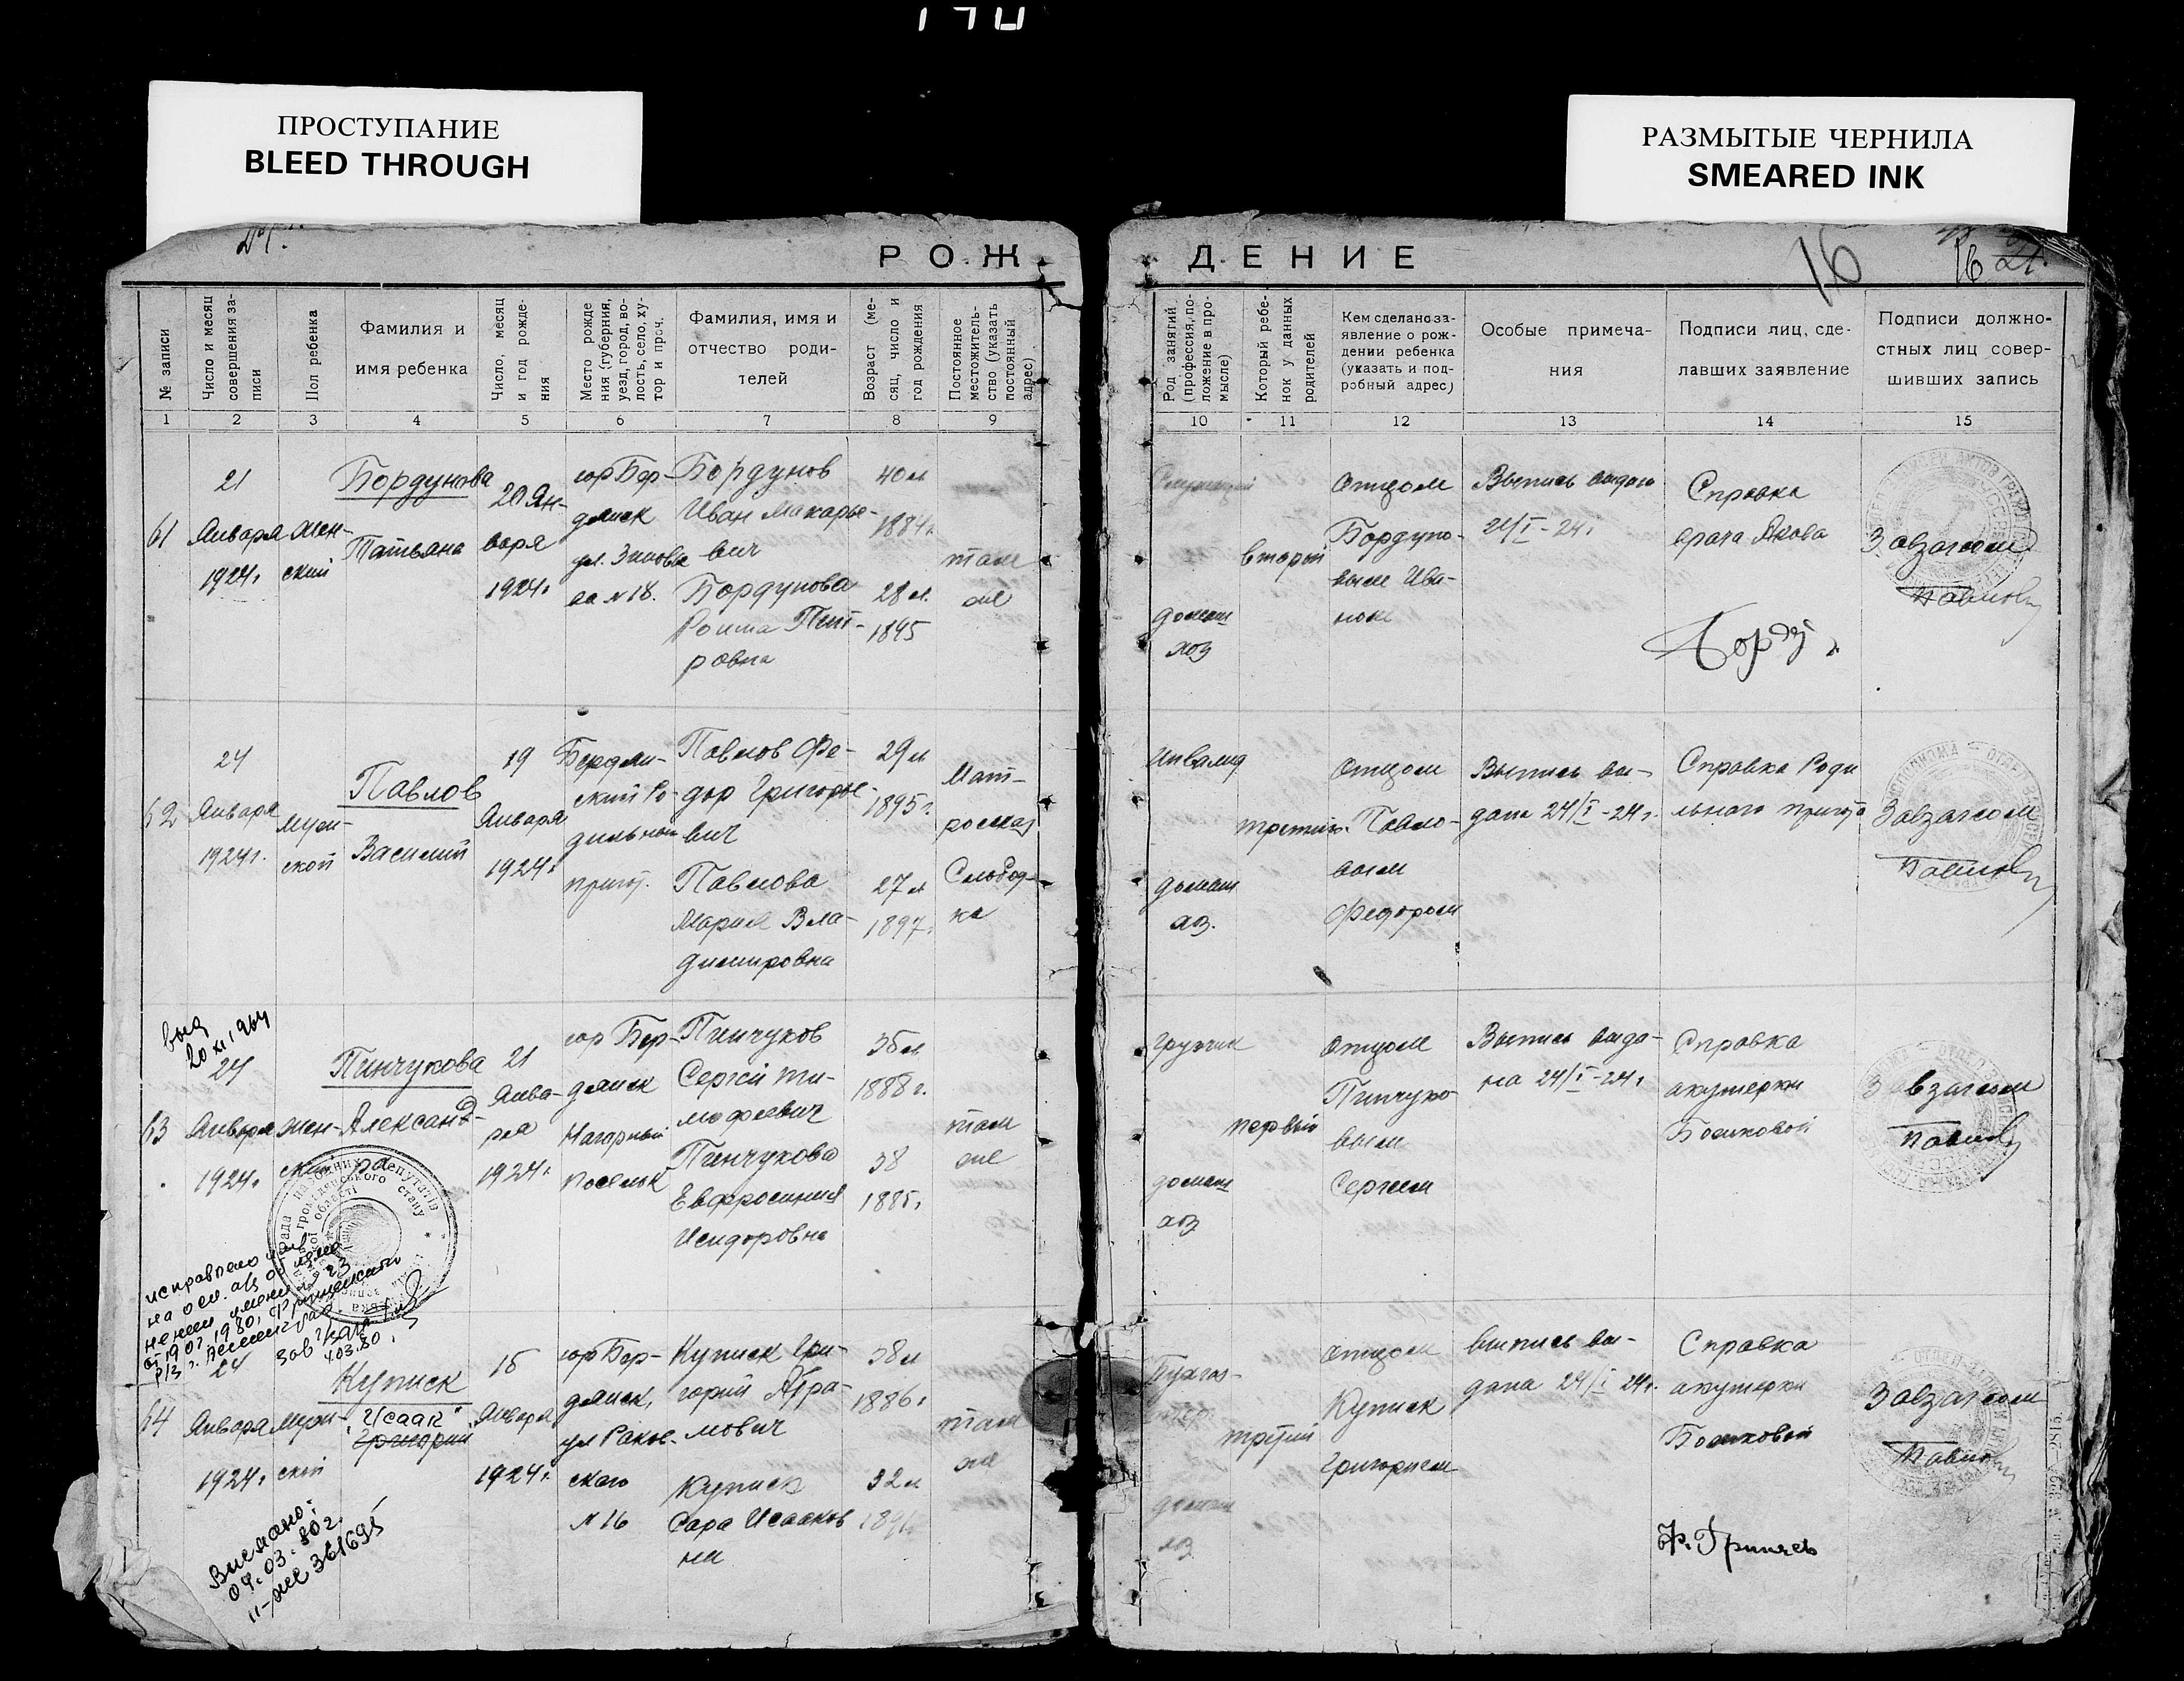 ПРОСТУПАНИЕ
BLEED THROUGH
РАЗМЫТЫЕ ЧЕРНИЛА
SMEARED INK
РОЖ
ДЕНИЕ
16
16
21.
№ записи
Число и месяц
совершения за-
писи
Пол ребенка
Фамилия и
имя ребенка
Число, месяц
и год рожде-
ния
Место рожде
ния (губерния,
уезд, город, во-
лость, село, ху-
тор и проч.
Фамилия, имя и
отчество роди-
телей
Возраст (ме-
сяц, число и
год рождения
Постоянное
местожитель-
ство (указать
постоянный
адрес)
Род занятий
(профессия, по-
ложение в про-
мысле)
Который ребе-
нок у данных
родителей
Кем сделано за-
явление о рож-
дении ребенка
(указать и под-
робный адрес)
Особые примеча-
ния
Подписи лиц, сде-
лавших заявление
Подписи должно-
стных лиц совер-
шивших запись
1 2 3 4 5 6 7 8 9
10 11 12 13 14 15
61
21
Января
1924г
жен-
ский
Бордунова
Татьяна
20 Ян-
варя
1924г
гор Бер-
дянск
ул.
№ 18.
Бордунов
Иван Макарье-
вич
Бордунова
ровна
40 л
1884г
28 л.
1895
там
же
домаш
хоз
второй
Отцом
Бордуно-
вым Ива-
ном
Выпись выдана
21/I-24г
Справка
врача Якова
Завзагсом
62
24
Января
1924г.
муж-
ской
Павлов
Василий
19
Января
1924г
Бердян-
ский Ро-
дильный
приют.
Павлов Фе-
дор Григорье-
вич
Павлова
Мария Вла-
димировна
29 л
1895г
27 л
1897г
Мат-
росская
Слобод-
ка
Инвалид
домаш
хоз.
третий
Отцом
Павло-
вым
Федором
Выпись вы-
дана 24/I-24г.
Справка Роди
льного приюта
Завзагсом
выд
20 XI 1964
63
24
Января
1924г
жен-
ский
Пинчукова
Александ-
ра
21
Янва-
ря
1924г
гор Бер-
дянск
Нагорный
поселок
Пинчуков
Сергей Ти-
мофеевич
Пинчукова
Евфросиния
Исидоровна
36 л
1888г.
38
1885г
там
же
грузчик
домаш
хоз
первый
Отцом
Пинчуко
вым
Сергеем
Выпись выда-
на 24/I-24г
Справка
акушерки
Босиковой
Завзагсом
исправлено имя
на осн. а/з об изме-
нении имени № 23
от 19.02.1980
4.03.80
64
24
Января
1924г
муж-
ской
Куписк
"Исаак"
Григорий
16
Января
1924г
гор Бер-
дянск,
ул Раков-
ского
№ 16
Куписк Гри-
горий Абра-
мович
Куписк
Сара Исааков
на
38 л
1886г
32 л
там
же
Бухгал-
тер
домаш
хоз
третий
Отцом
Куписк
Григорием
выпись вы-
дана 24/I 24г.
Справка
акушерки
Босиковой
Завзагсом
Выслано:
04.03.80г.
II-ЖС 361695